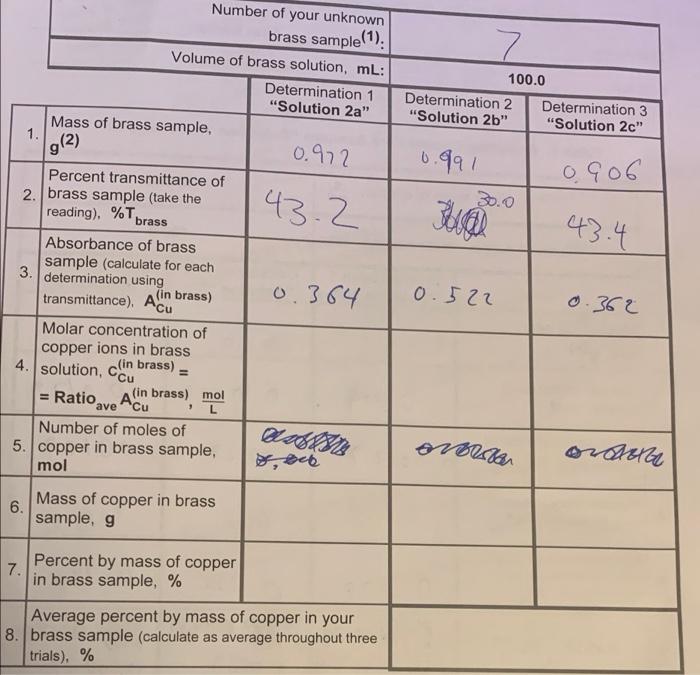 Number of your unknown
brass sample(1):
7
Volume of brass solution, mL:
100.0
Determination 1
"Solution 2a"
Determination 2
"Solution 2b"
Determination 3
"Solution 2c"
1.
Mass of brass sample,
g(2)
0.972
0.991
0.906
2.
Percent transmittance of
brass sample (take the
reading), %Tbrass
43.2
30.0
43.4
3.
Absorbance of brass
sample (calculate for each
determination using
transmittance), ACu(in brass)
0.364
0.522
0.362
4.
Molar concentration of
copper ions in brass
solution, cCu(in brass) =
= Ratioave ACu(in brass), mol/L
5.
Number of moles of
copper in brass sample,
mol
6.
Mass of copper in brass
sample, g
7.
Percent by mass of copper
in brass sample, %
8.
Average percent by mass of copper in your
brass sample (calculate as average throughout three
trials), %